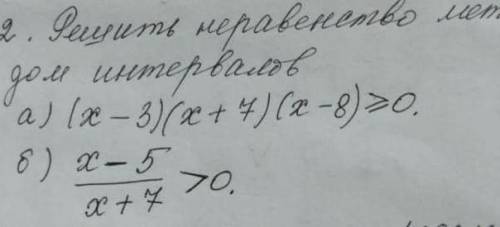 2. Решить неравенство мет
дом интервалов
а) (x - 3)(x + 7)(x - 8) ≥ 0.
б) x - 5
x + 7 > 0.